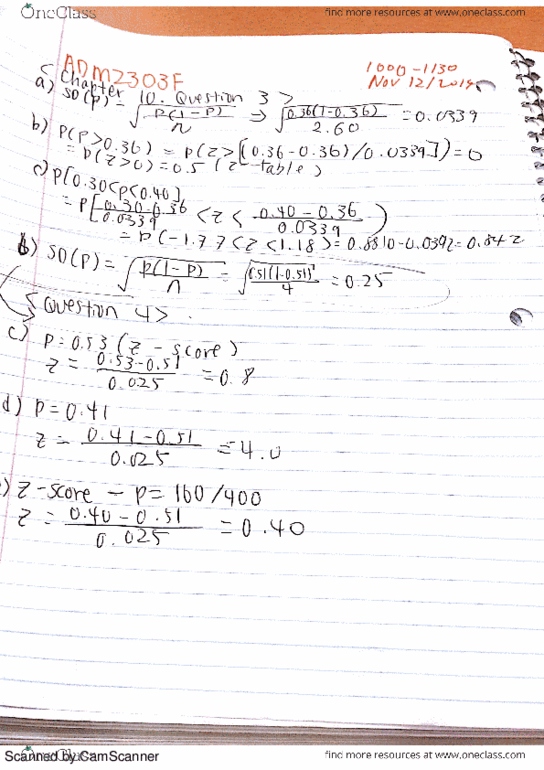 OneClass
find more resources at www.oneclass.com
ADM2303F
1000-1130
Nov 12/2014
< Chapter 10. Question 3 >
a) SD(p) = √p(1-p)/n ⇒ √0.36(1-0.36)/2.60 = 0.0339
b) P(p>0.36) = P(z>[(0.36-0.36)/0.0339]) = 0
= P(z>0) = 0.5 (z-table)
c) P[0.30<p<0.40]
= P[0.30-0.36/0.0339 < z < 0.40-0.36/0.0339)
= P(-1.77<z<1.18) = 0.8810-0.0392 = 0.842
b) SD(p) = √p(1-p)/n = √0.51(1-0.51)/4 = 0.25
< Question 4 > .
c) p = 0.53 (z-score)
z = 0.53-0.51/0.025 = 0.8
d) p = 0.41
z = 0.41-0.51/0.025 = 4.0
) z-score - p = 160/400
z = 0.40-0.51/0.025 = 0.40
Scanned by CamScanner
OneClass
find more resources at www.oneclass.com